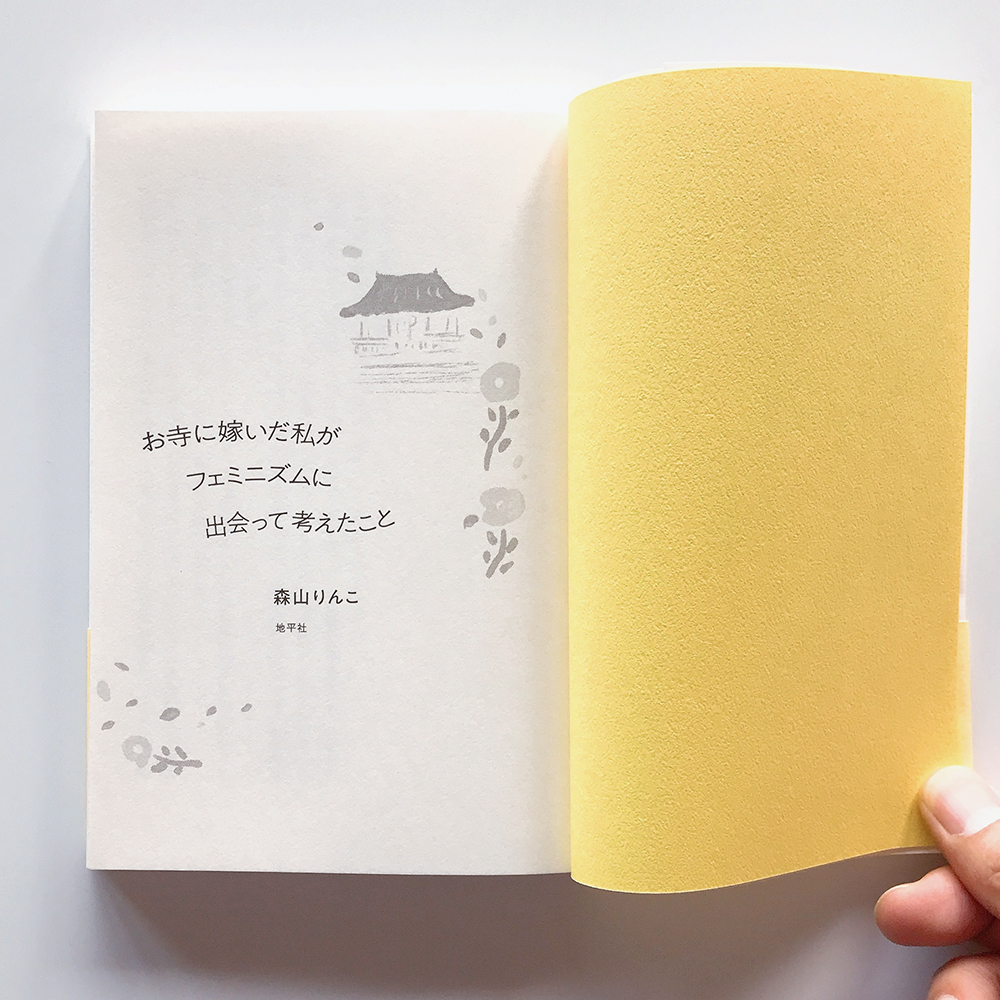 お寺に嫁いだ私が
フェミニズムに
出会って考えたこと
森山りんこ
地平社